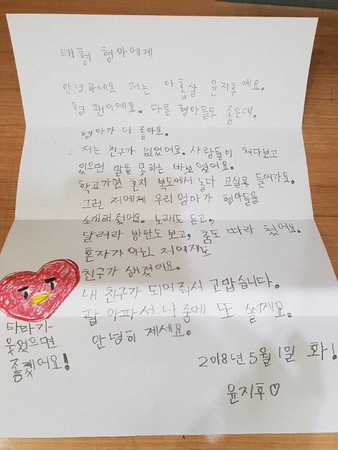 태형 형아에게
안녕하세요 저는 아홉살 윤지후에요.
형 팬이에요. 다른 형아들도 좋은데,
형아가 더 좋아요.
저는 친구가 없었어요. 사람들이 쳐다보고
있으면 말을 못하는 바보였어요.
학교가면 혼자 복도에서 놀다 교실로 들어가요.
그런 저에게 우리 엄마가 형아들을
소개해줬어요. 노래도 듣고,
달려라 방탄도 보고, 춤도 따라 췄어요.
혼자가 아닌 저에게도
친구가 생겼어요.
내 친구가 되어줘서 고맙습니다.
팔 아파서 나중에 또 쓸게요.
안녕히 계세요.
타타가
웃었으면
좋겠어요!
2018년 5월 1일 화!
윤지후♡